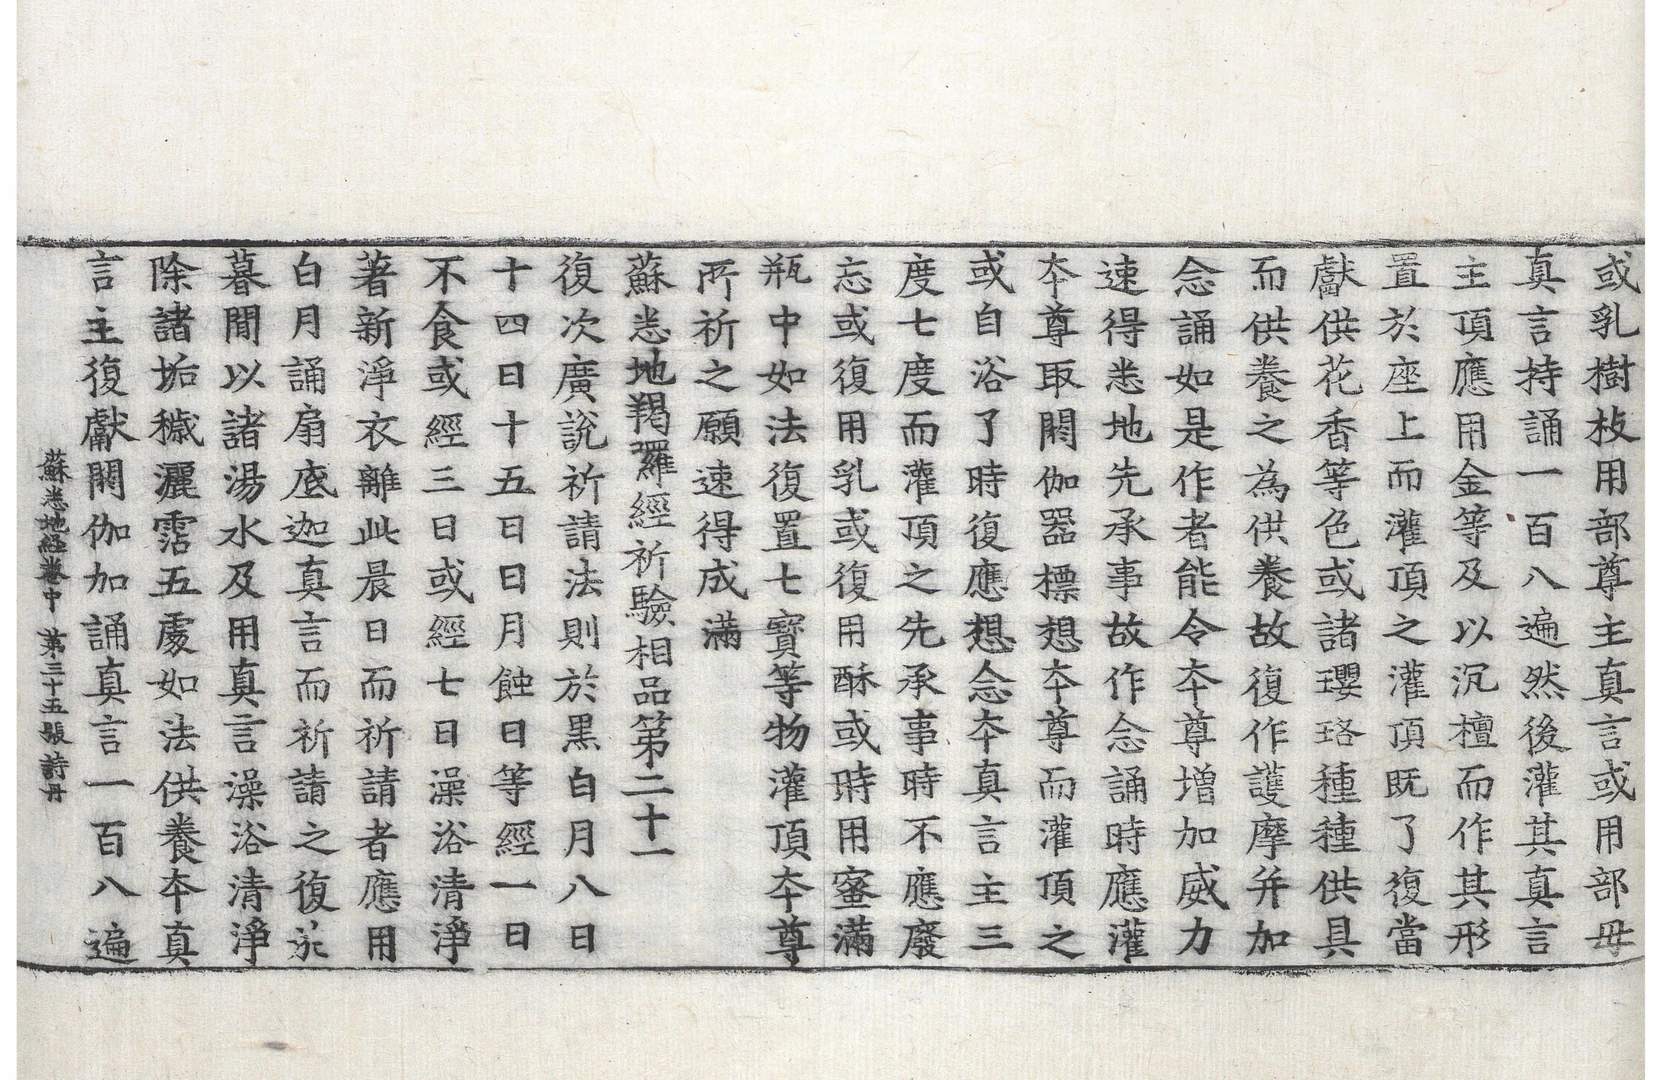 或乳樹枝用部尊主真言或用部母
真言持誦一百八遍然後灌其真言
主頂應用金等及以沉檀而作其形
置於座上而灌頂之灌頂既了復當
獻供花香等色或諸瓔珞種種供具
而供養之為供養故復作護摩并加
念誦如是作者能令夲尊增加威力
速得悉地先承事故作念誦時應灌
夲尊取閼伽器標想夲尊而灌頂之
或自浴了時復應想念夲真言主三
度七度而灌頂之先承事時不應廢
忘或復用乳或復用酥或時用蜜滿
瓶中如法復置七寶等物灌頂夲尊
所祈之願速得成滿
蘇悉地羯囉經祈驗相品第二十一
復次廣說祈請法則於黑白月八日
十四日十五日日月蝕日等經一日
不食或經三日或經七日澡浴清淨
著新淨衣離此晨日而祈請者應用
白月誦扇底迦真言而祈請之復於
暮間以諸湯水及用真言澡浴清淨
除諸垢穢灑霑五處如法供養夲真
言主復獻閼伽加誦真言一百八遍
蘇悉地經卷中 第三十五張 詩丹